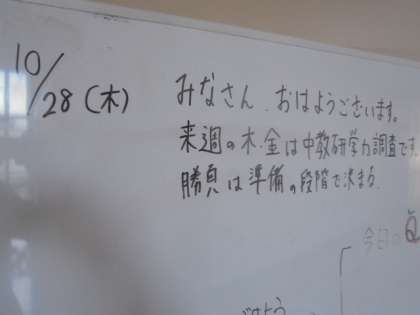 10/28(木)
みなさん、おはようございます。
来週の木・金は中教研学力調査です
勝負は準備の段階で決まる
今日の